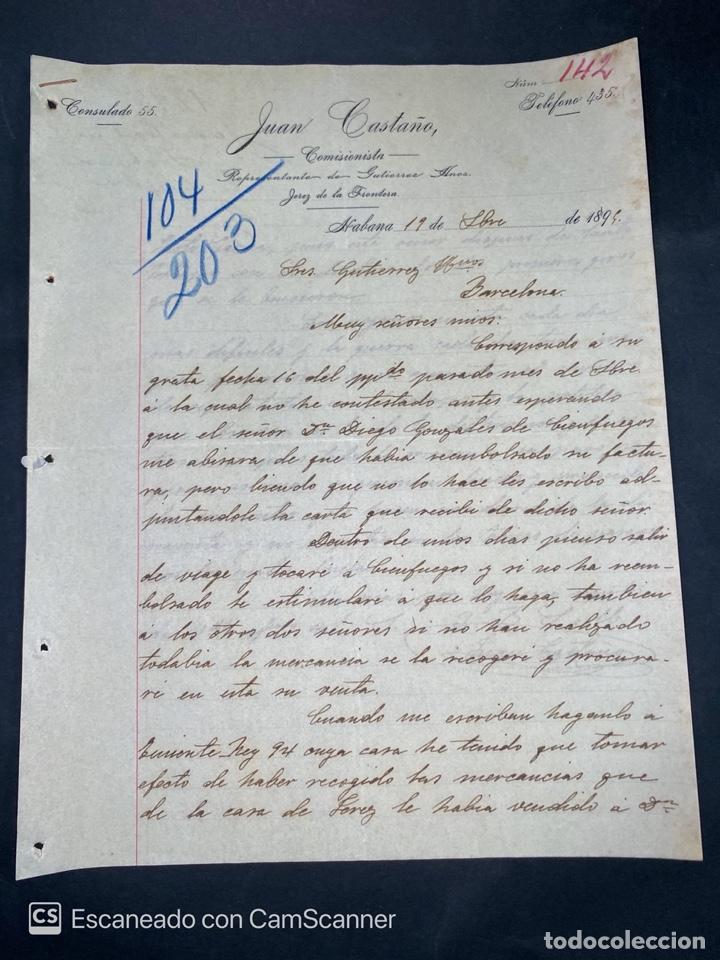 Núm 142
Consulado 55.
Teléfono 435.
Juan Castaño,
Comisionista
Representante de Gutierrez Hnos.
Jerez de la Frontera.
104
203
Habana 19 de Sbre de 189
Sres. Gutierrez Hnos
Barcelona.
Muy señores mios:
Correspondo á su
grata fecha 16 del ppdo pasado mes de Sbre
á la cual no he contestado antes esperando
que el señor Dn Diego Gonzales de Cienfuegos
me abisara de que habia reembolsado su factu-
ra, pero biendo que no lo hace les escribo ad-
juntandole la carta que recibi de dicho señor.
Dentro de unos dias pienso salir
de viage y tocaré á Cienfuegos y si no ha reem-
bolsado le estimularé á que lo haga, tambien
á los otros dos señores si no han realizado
todabia la mercancia se la recogeré y procura-
ré en esta su venta.
Cuando me escriban haganlo á
Teniente-Rey 94 cuya casa he tenido que tomar
efecto de haber recogido las mercancias que
de la casa de Jerez le habia vendido á Dn
CS Escaneado con CamScanner
todocoleccion